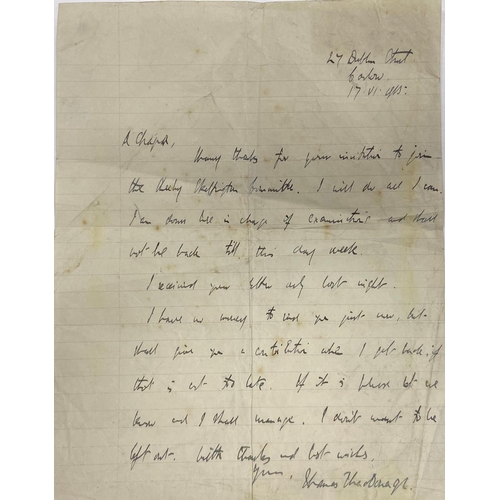 27 Dublin Street
Carlow
17. VI. 1915.
A Chara,
Many thanks for your invitation to join
the Sheehy Skeffington Committee. I will do all I can.
I am down here in charge of examinations and shall
not be back till this day week.
I received your letter only last night.
I have no money to send you just now, but
shall give you a contribution when I get back, if
that is not too late. If it is please let me
know and I shall manage. I don't want to be
left out. With thanks and best wishes,
Yours,
Thomas MacDonagh.